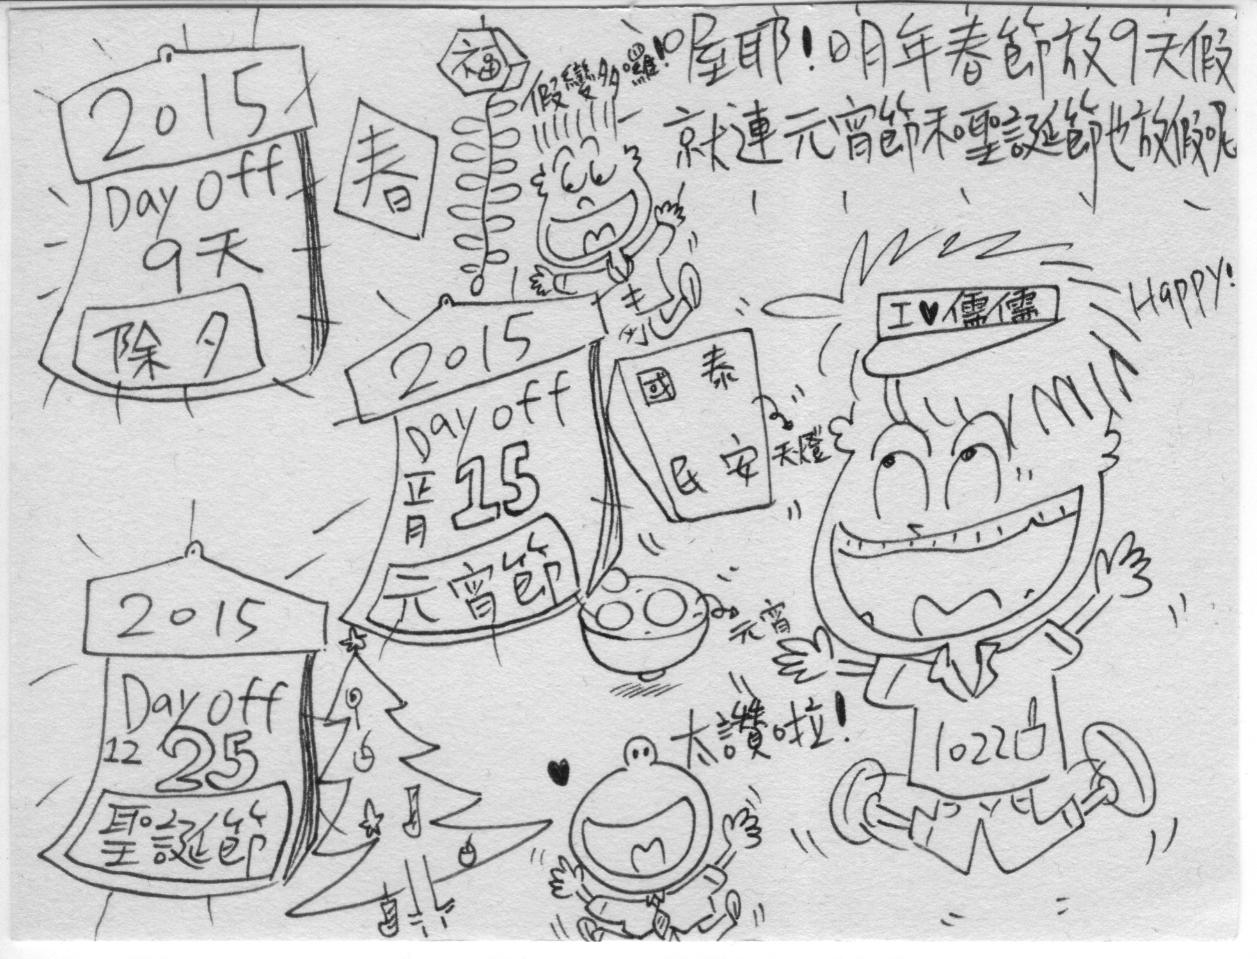 屋耶!明年春節放9天假
就連元宵節和聖誕節也放假呢
2015
Day off
9天
除夕
春
福
假變多囉!
I♥儒儒
Happy!
2015
Day off
正月
15
元宵節
國泰
民安
天燈
元宵
2015
Day off
12 25
聖誕節
太讚啦!
1022